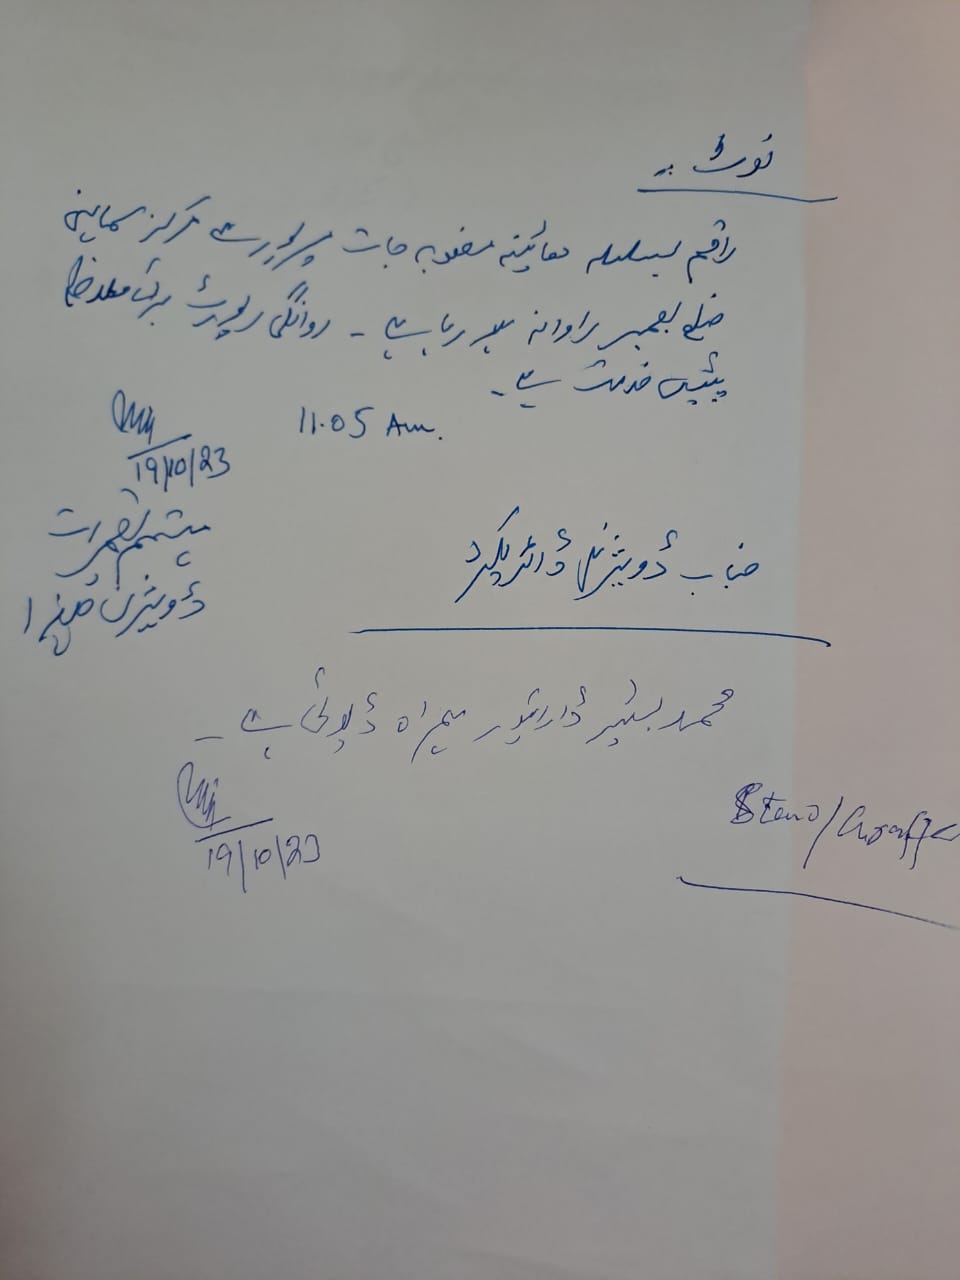 نوٹ :-
راقم بسلسلہ معائینہ منصوبہ جات مرکز سماہنی
ضلع بھمبر روانہ ہو رہا ہے ۔ روانگی رپورٹ برائے ملاحظہ
پیش خدمت ہے ۔
11.05 Am.
19/10/23
مہتمم تعمیرات
ڈویژن
جناب ڈویژنل ڈائریکٹر
محمد بشیر ڈرائیور ہمراہ ڈیوٹی ہے ۔
19/10/23
Steno/